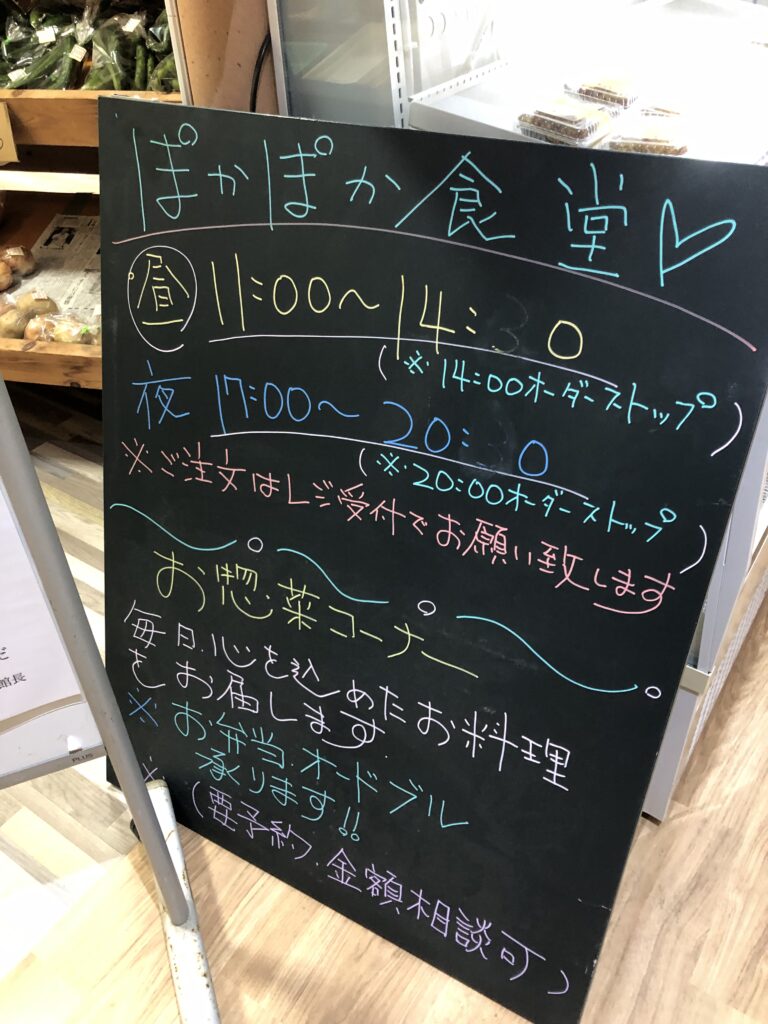 ぽかぽか食堂♡
昼 11:00〜14:30
(※14:00オーダーストップ)
夜 17:00〜20:30
(※20:00オーダーストップ)
※ご注文はレジ受付でお願い致します
お惣菜コーナー
毎日、心を込めたお料理
をお届します
※お弁当、オードブル
承ります!!
※(要予約、金額相談可)
館長
PLUS